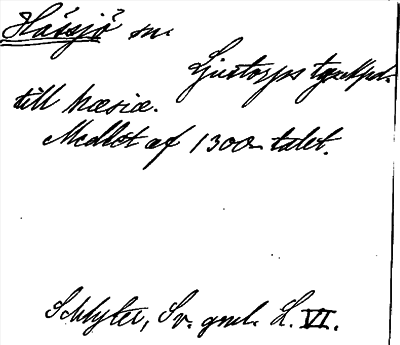 Hässjö sn.
Ljustorps tgskpl.
till hæsiæ.
Medlet af 1300-talet.
Schlyter, Sv. gml. L. VI.